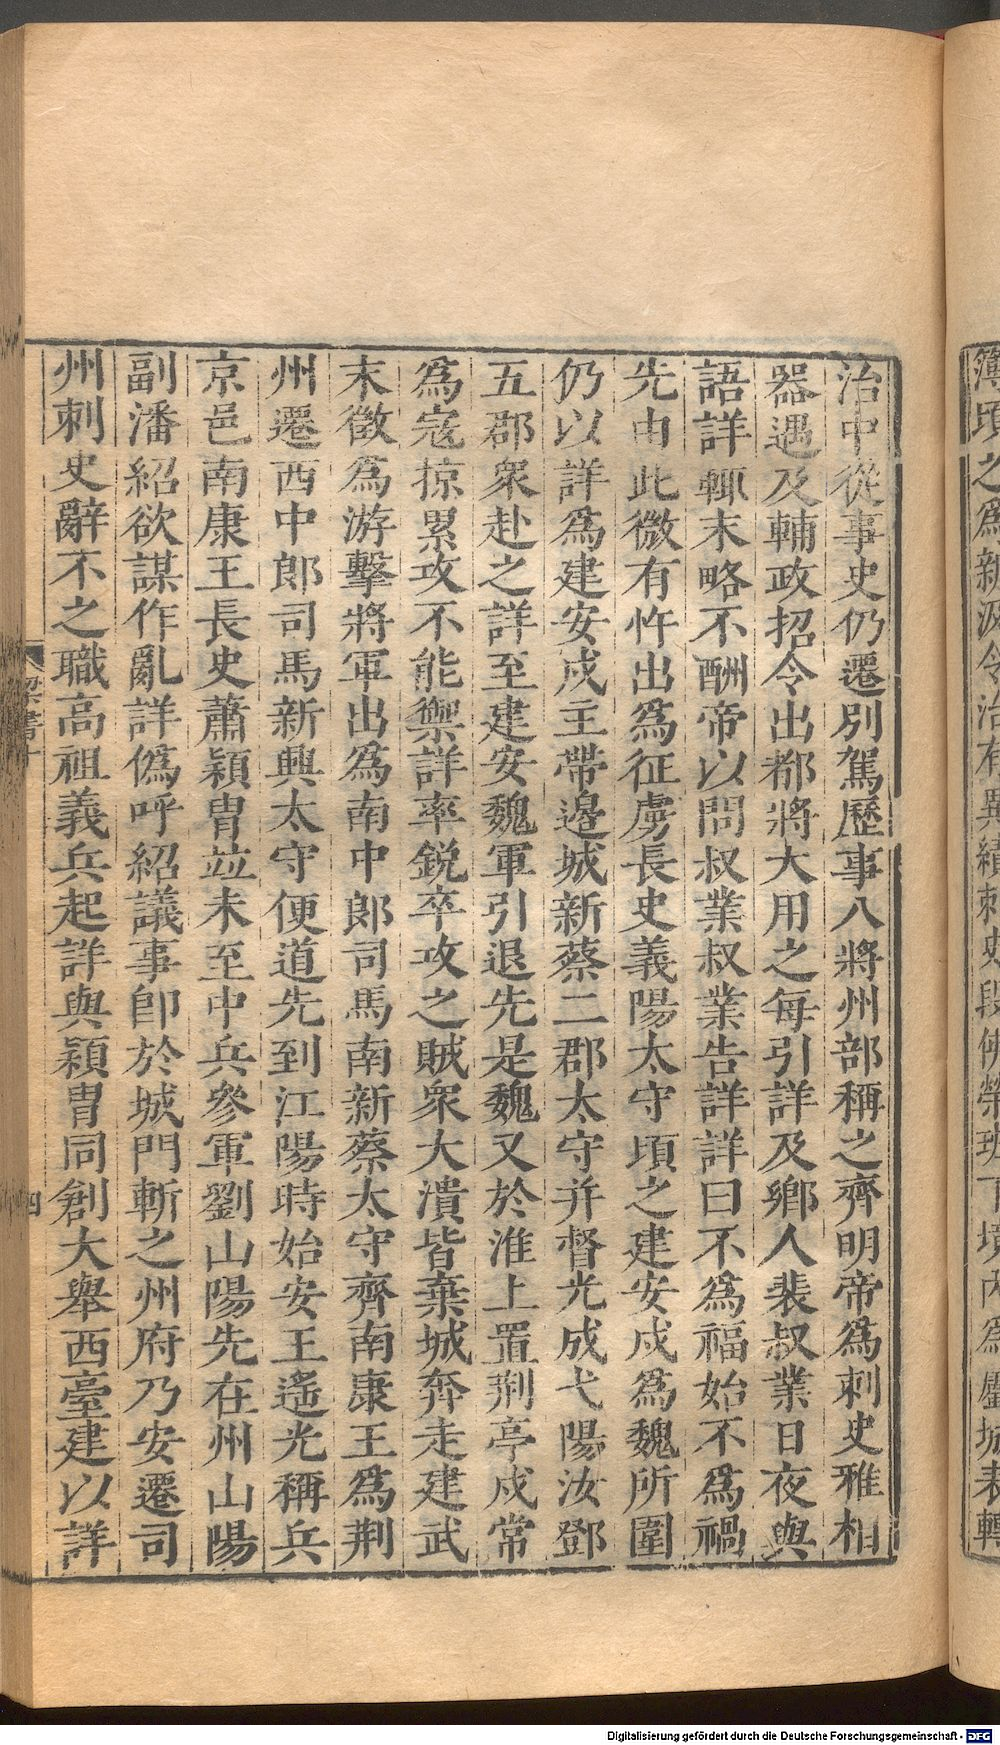 簿頃之爲新汲令治有異績刺史段佛榮班下境內爲屬城表轉
治中從事史仍遷別駕歷事八將州部稱之齊明帝爲刺史雅相
器遇及輔政招令出都將大用之每引詳及鄉人裴叔業日夜與
語詳輒末略不酬帝以問叔業叔業告詳詳曰不爲福始不爲禍
先由此微有忤出爲征虜長史義陽太守頃之建安戍爲魏所圍
仍以詳爲建安戍主帶邊城新蔡二郡太守并督光成弋陽汝鄧
五郡衆赴之詳至建安魏軍引退先是魏又於淮上置荆亭戍常
爲寇掠累攻不能禦詳率銳卒攻之賊衆大潰皆棄城奔走建武
末徵爲游擊將軍出爲南中郎司馬南新蔡太守齊南康王爲荆
州遷西中郎司馬新興太守便道先到江陽時始安王遙光稱兵
京邑南康王長史蕭穎冑竝未至中兵參軍劉山陽先在州山陽
副潘紹欲謀作亂詳僞呼紹議事卽於城門斬之州府乃安遷司
州刺史辭不之職高祖義兵起詳與穎冑同創大舉西臺建以詳
梁書十
四
Digitalisierung gefördert durch die Deutsche Forschungsgemeinschaft - DFG